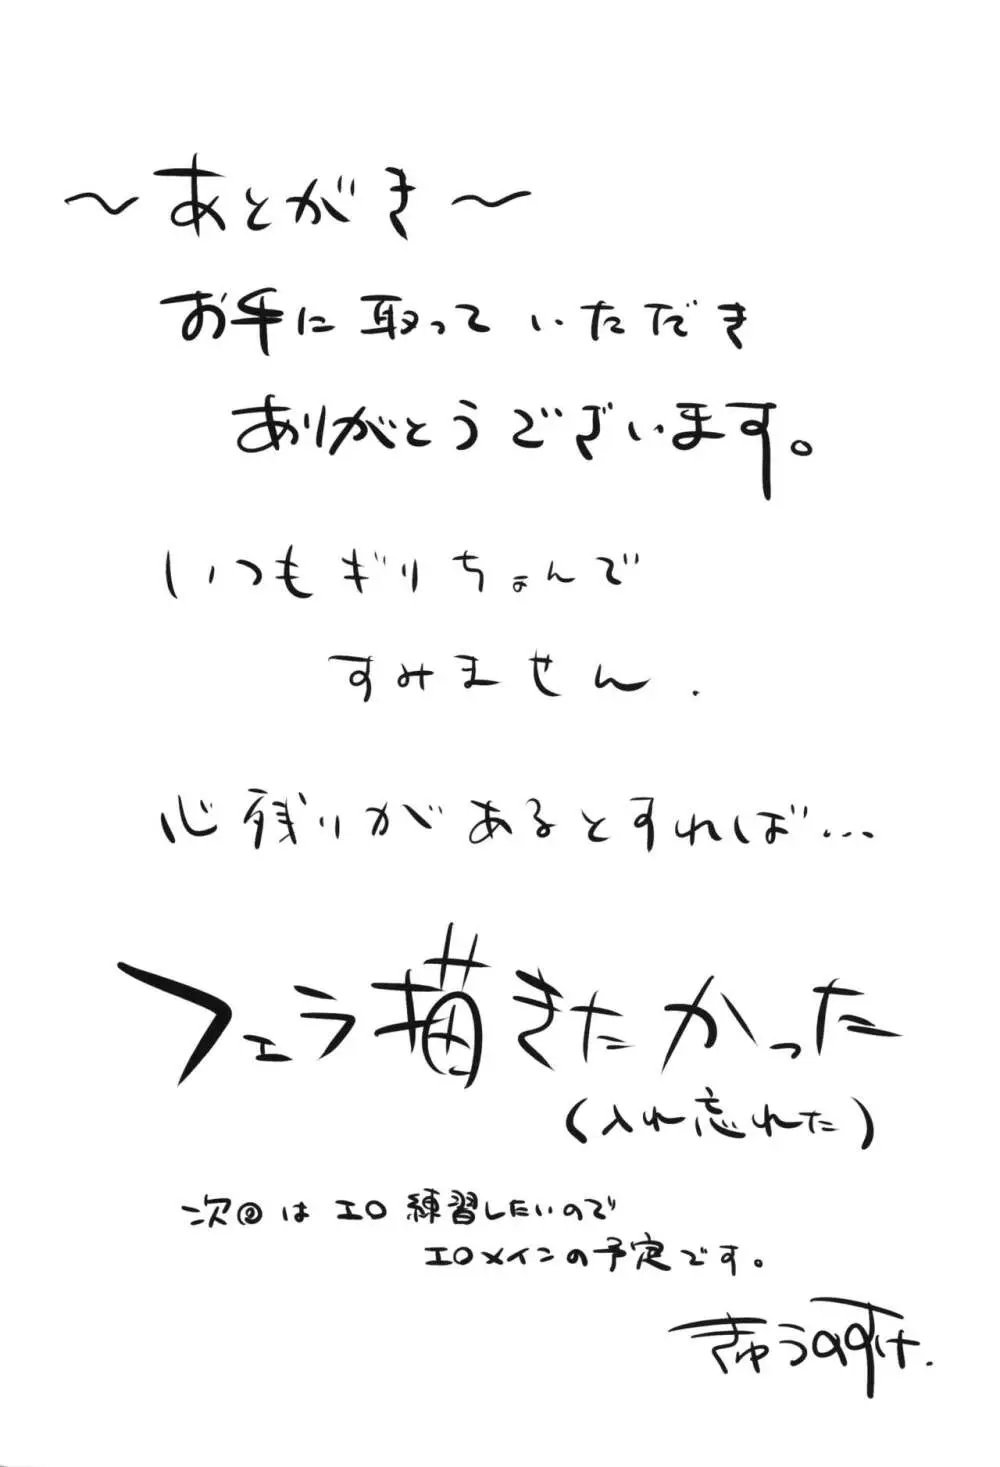 ～あとがき～
お手に取っていただき
ありがとうございます。
いつもギリちょんで
すみません.
心残りがあるとすれば…
フェラ描きたかった
(入れ忘れた)
次回はエロ練習したいので
エロメインの予定です。
きゅうのすけ.